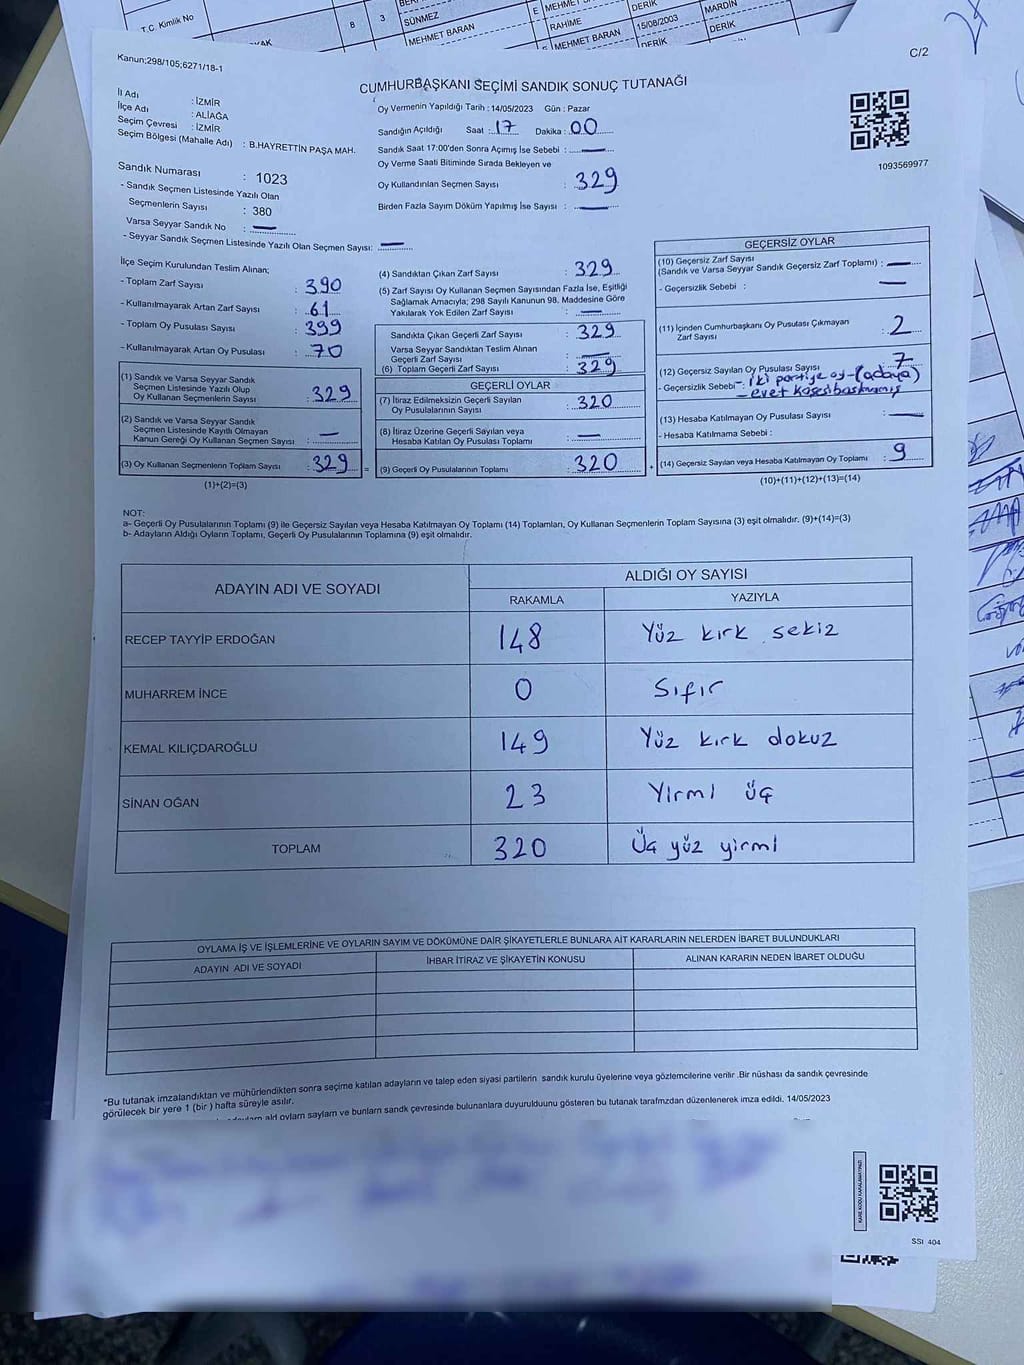 T.C. Kimlik No
8
3
SÜNMEZ
MEHMET BARAN
E
RAHİME
MEHMET BARAN
DERİK
15/08/2003
DERİK
MARDİN
DERİK
Kanun;298/105;6271/18-1
C/2
CUMHURBAŞKANI SEÇİMİ SANDIK SONUÇ TUTANAĞI
İl Adı : İZMİR
İlçe Adı : ALİAĞA
Seçim Çevresi : İZMİR
Seçim Bölgesi (Mahalle Adı) : B.HAYRETTİN PAŞA MAH.
Oy Vermenin Yapıldığı Tarih : 14/05/2023 Gün : Pazar
Sandığın Açıldığı Saat : 17 Dakika : 00
Sandık Saat 17:00'den Sonra Açımış İse Sebebi : —
Oy Verme Saati Bitiminde Sırada Bekleyen ve
Oy Kullandırılan Seçmen Sayısı : 329
Birden Fazla Sayım Döküm Yapılmış İse Sayısı : —
1093569977
Sandık Numarası : 1023
- Sandık Seçmen Listesinde Yazılı Olan
Seçmenlerin Sayısı : 380
Varsa Seyyar Sandık No : —
- Seyyar Sandık Seçmen Listesinde Yazılı Olan Seçmen Sayısı: —
İlçe Seçim Kurulundan Teslim Alınan;
- Toplam Zarf Sayısı : 390
- Kullanılmayarak Artan Zarf Sayısı : 61
- Toplam Oy Pusulası Sayısı : 399
- Kullanılmayarak Artan Oy Pusulası : 70
(1) Sandık ve Varsa Seyyar Sandık
Seçmen Listesinde Yazılı Olup
Oy Kullanan Seçmenlerin Sayısı : 329
(2) Sandık ve Varsa Seyyar Sandık
Seçmen Listesinde Kayıtlı Olmayan
Kanun Gereği Oy Kullanan Seçmen Sayısı : —
(3) Oy Kullanan Seçmenlerin Toplam Sayısı : 329 =
(1)+(2)=(3)
(4) Sandıktan Çıkan Zarf Sayısı : 329
(5) Zarf Sayısı Oy Kullanan Seçmen Sayısından Fazla İse, Eşitliği
Sağlamak Amacıyla; 298 Sayılı Kanunun 98. Maddesine Göre
Yakılarak Yok Edilen Zarf Sayısı : —
Sandıkta Çıkan Geçerli Zarf Sayısı : 329
Varsa Seyyar Sandıktan Teslim Alınan
Geçerli Zarf Sayısı : —
(6) Toplam Geçerli Zarf Sayısı : 329
GEÇERLİ OYLAR
(7) İtiraz Edilmeksizin Geçerli Sayılan
Oy Pusulalarının Sayısı : 320
(8) İtiraz Üzerine Geçerli Sayılan veya
Hesaba Katılan Oy Pusulası Toplamı : —
(9) Geçerli Oy Pusulalarının Toplamı : 320 +
GEÇERSİZ OYLAR
(10) Geçersiz Zarf Sayısı
(Sandık ve Varsa Seyyar Sandık Geçersiz Zarf Toplamı) : —
- Geçersizlik Sebebi : —
(11) İçinden Cumhurbaşkanı Oy Pusulası Çıkmayan
Zarf Sayısı : 2
(12) Geçersiz Sayılan Oy Pusulası Sayısı : 7
- Geçersizlik Sebebi - : İki partiye oy - (adaya)
- evet kaşesi basılmamış
(13) Hesaba Katılmayan Oy Pusulası Sayısı : —
- Hesaba Katılmama Sebebi :
(14) Geçersiz Sayılan veya Hesaba Katılmayan Oy Toplamı : 9
(10)+(11)+(12)+(13)=(14)
NOT:
a- Geçerli Oy Pusulalarının Toplamı (9) ile Geçersiz Sayılan veya Hesaba Katılmayan Oy Toplamı (14) Toplamları, Oy Kullanan Seçmenlerin Toplam Sayısına (3) eşit olmalıdır. (9)+(14)=(3)
b- Adayların Aldığı Oyların Toplamı, Geçerli Oy Pusulalarının Toplamına (9) eşit olmalıdır.
ADAYIN ADI VE SOYADI
ALDIĞI OY SAYISI
RAKAMLA
YAZIYLA
RECEP TAYYİP ERDOĞAN 148 Yüz kırk sekiz
MUHARREM İNCE 0 Sıfır
KEMAL KILIÇDAROĞLU 149 Yüz kırk dokuz
SİNAN OĞAN 23 Yirmi üç
TOPLAM 320 Üç yüz yirmi
OYLAMA İŞ VE İŞLEMLERİNE VE OYLARIN SAYIM VE DÖKÜMÜNE DAİR ŞİKAYETLERLE BUNLARA AİT KARARLARIN NELERDEN İBARET BULUNDUKLARI
ADAYIN ADI VE SOYADI
İHBAR İTİRAZ VE ŞİKAYETİN KONUSU
ALINAN KARARIN NEDEN İBARET OLDUĞU
*Bu tutanak imzalandıktan ve mühürlendikten sonra seçime katılan adayların ve talep eden siyasi partilerin sandık kurulu üyelerine veya gözlemcilerine verilir .Bir nüshası da sandık çevresinde
görülecek bir yere 1 (bir ) hafta süreyle asılır.
ald oylarn saylarn ve bunlarn sandk çevresinde bulunanlara duyurulduunu gösteren bu tutanak tarafmzdan düzenlenerek imza edildi. 14/05/2023
KARE KODU KARALAMAYINIZ!
SSI 404